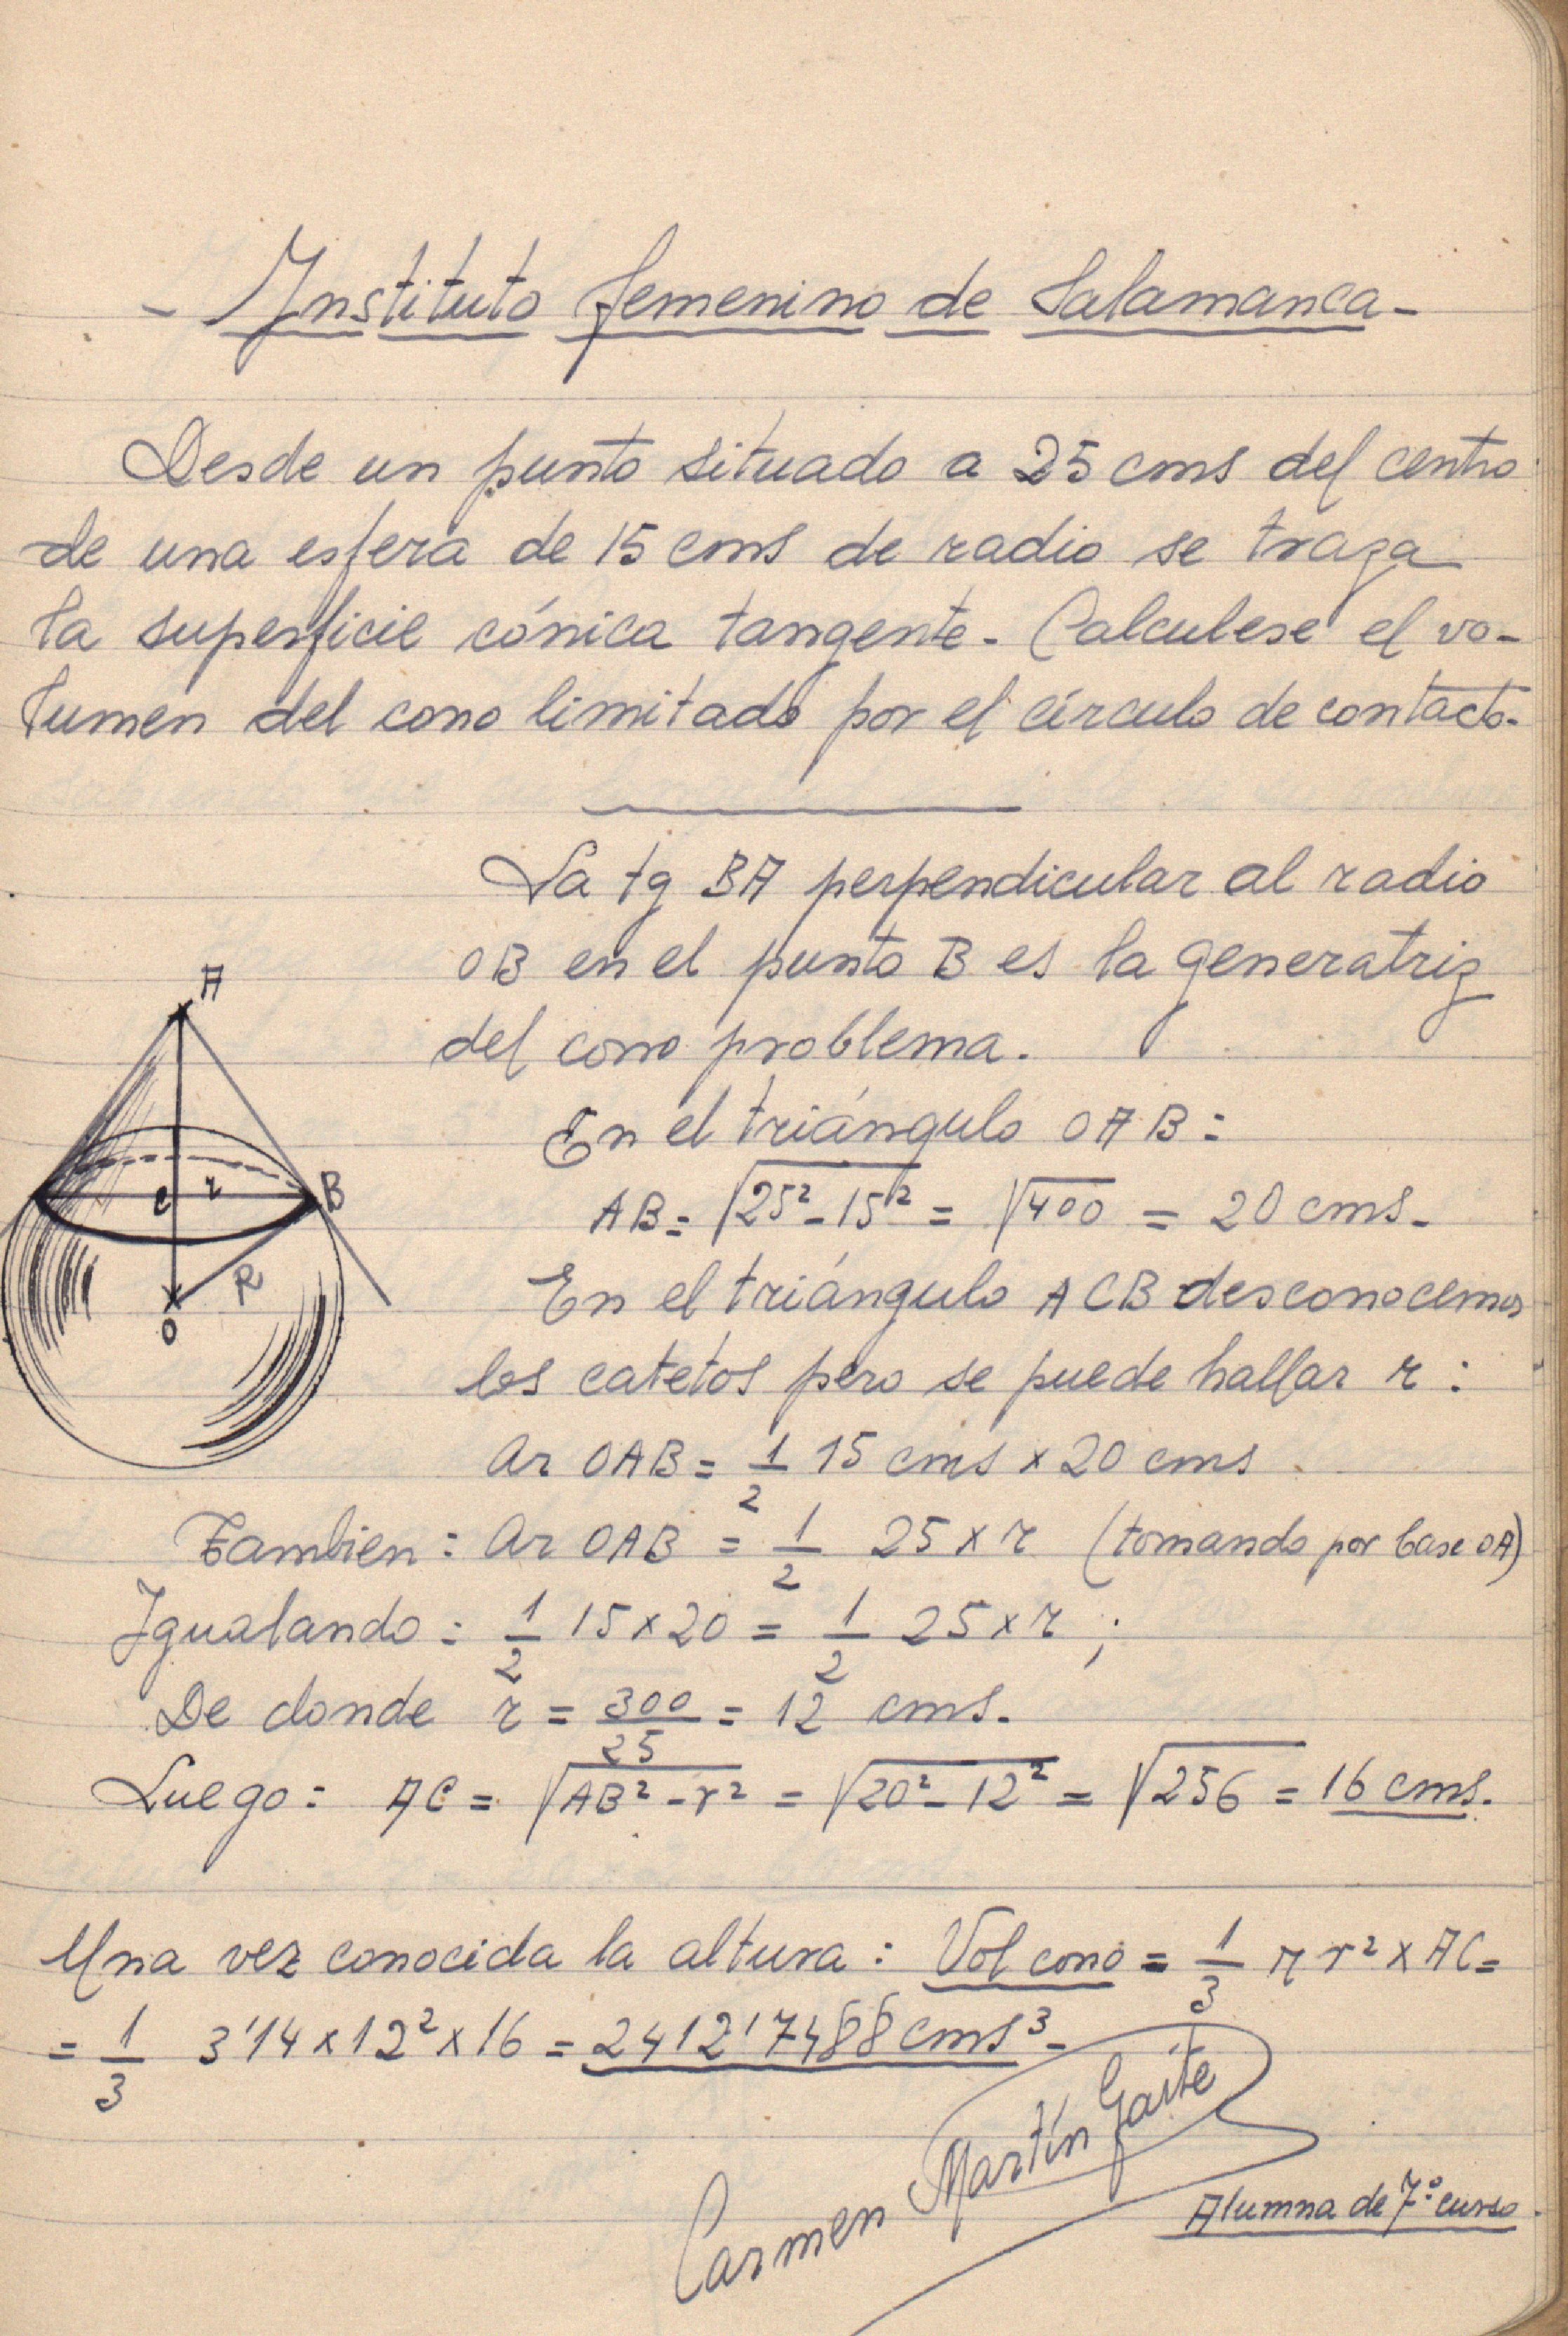 - Instituto femenino de Salamanca -
Desde un punto situado a 25 cms del centro
de una esfera de 15 cms de radio se traza
la superficie cónica tangente. Calculese el vo-
lumen del cono limitado por el círculo de contacto.
La tg BA perpendicular al radio
OB en el punto B es la generatriz
del cono problema.
A
C r B
R
O
En el triángulo OAB:
AB = √25² - 15² = √400 = 20 cms.
En el triángulo ACB desconocemos
los catetos pero se puede hallar r:
Ar OAB = 1/2 15 cms x 20 cms
Tambien: Ar OAB = 1/2 25 x r (tomando por base OA)
Igualando: 1/2 15 x 20 = 1/2 25 x r ;
De donde r = 300/25 = 12 cms.
Luego: AC = √AB² - r² = √20² - 12² = √256 = 16 cms.
Una vez conocida la altura: Vol cono = 1/3 π r² x AC =
= 1/3 3'14 x 12² x 16 = 2412'7488 cms³.
Carmen Martín Gaite
Alumna de 7º curso.